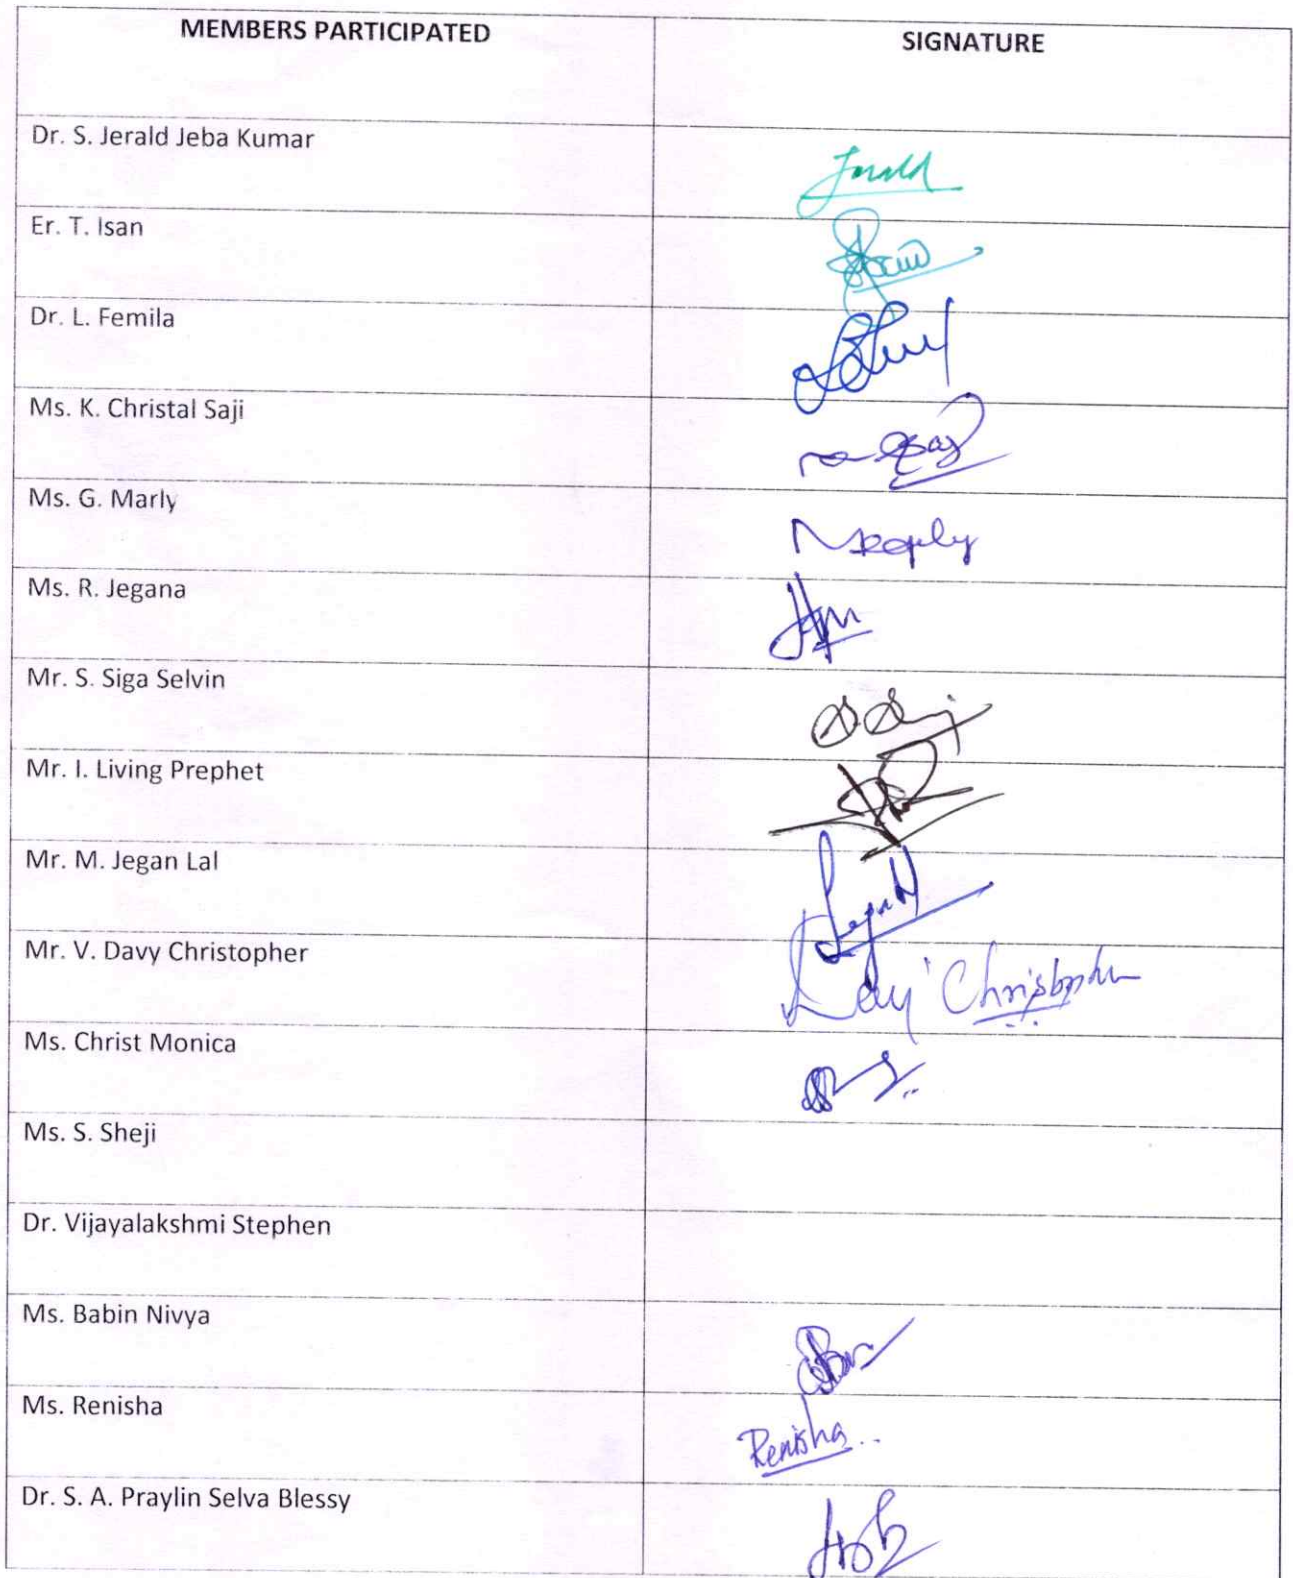 MEMBERS PARTICIPATED SIGNATURE
Dr. S. Jerald Jeba Kumar Jerald
Er. T. Isan
Dr. L. Femila
Ms. K. Christal Saji
Ms. G. Marly
Ms. R. Jegana
Mr. S. Siga Selvin
Mr. I. Living Prephet
Mr. M. Jegan Lal
Mr. V. Davy Christopher Davy Christopher
Ms. Christ Monica
Ms. S. Sheji
Dr. Vijayalakshmi Stephen
Ms. Babin Nivya
Ms. Renisha Renisha..
Dr. S. A. Praylin Selva Blessy